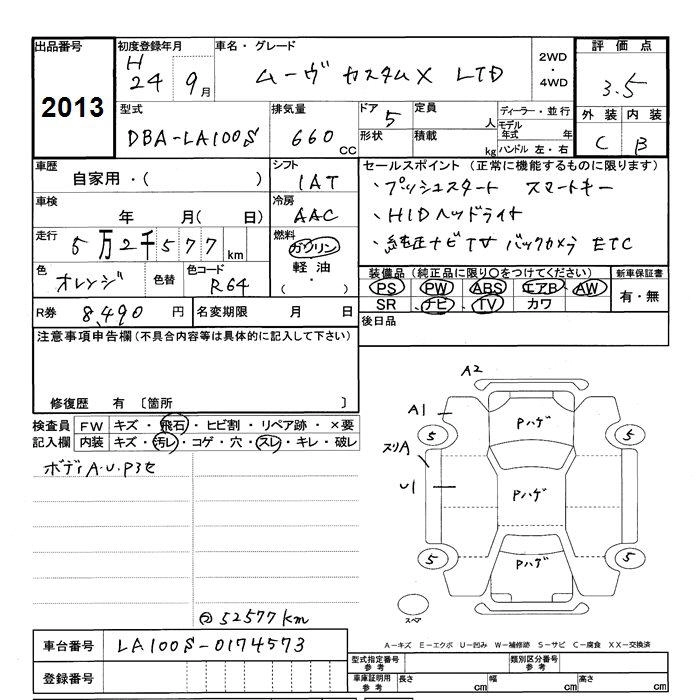 出品番号 初度登録年月 車名・グレード 2WD・4WD 評価点
2013 H 24 9月 ムーヴ カスタムX LTD 3.5
型式 排気量 ドア 5 定員 人 ディーラー・並行 外装 内装
DBA-LA100S 660 CC 形状 積載 kg モデル年式 年 C B
ハンドル 左・右
車歴 シフト セールスポイント (正常に機能するものに限ります)
自家用・( ) IAT ・プッシュスタート スマートキー
車検 冷房 ・HIDヘッドライト
年 月( 日) AAC ・純正ナビTV バックカメラ ETC
走行 5万2千577km 燃料 ガソリン
軽油・( )
色 オレンジ 色替 色コード R64
装備品(純正品に限り○をつけてください) 新車保証書
PS PW ABS エアB AW 有・無
SR ナビ TV カワ
R券 8,490 円 名変期限 月 日 後日品
注意事項申告欄(不具合内容等は具体的に記入して下さい)
修復歴 有 〔箇所 〕
検査員 FW キズ・飛石・ヒビ割・リペア跡・×要
記入欄 内装 キズ・汚レ・コゲ・穴・スレ・キレ・破レ
ボディA・U・Pヨセ
A2
A1 Pハゲ
5 5
スリA
U1 Pハゲ
5 Pハゲ 5
スペア
52577km
車台番号 LA100S-0174573
A-キズ E-エクボ U-凹み W-補修跡 S-サビ C-腐食 XX-交換済
登録番号 型式指定番号 参考 類別区分番号 参考
車庫証明用 参考 長さ cm 幅 cm 高さ cm